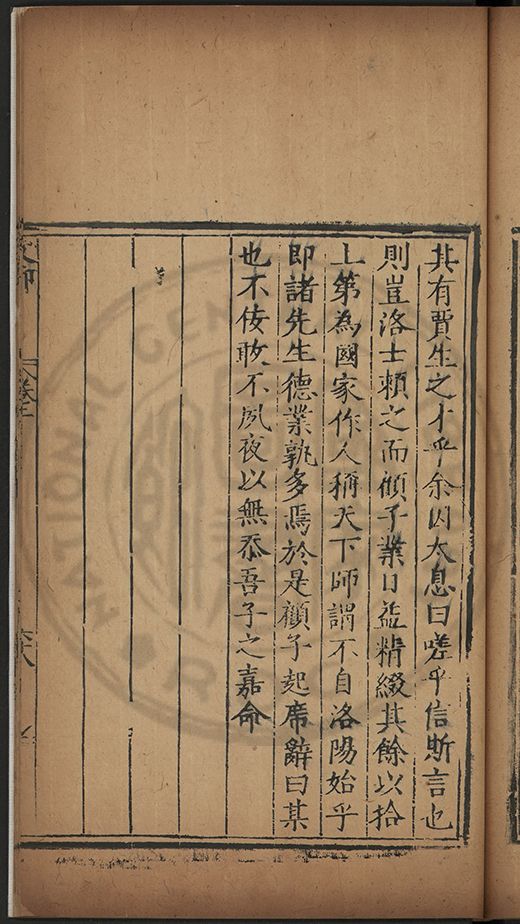 其有賈生之才乎余因太息曰嗟乎信斯言也
則豈洛士頼之而顧子業日益精綴其餘以拾
上第為國家作人稱天下師謂不自洛陽始乎
即諸先生德業孰多焉於是顧子起席辭曰某
也不佞敢不夙夜以無忝吾子之嘉命